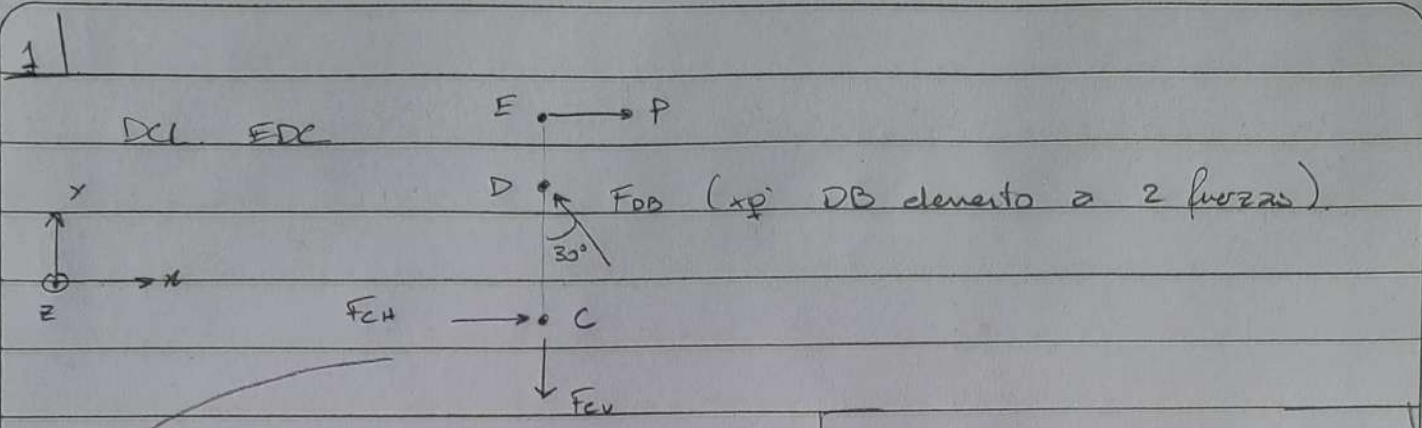 1
E P
DCL EDC
y
D FDB (xq' DB elemento a 2 fuerzas).
30°
x
z
FCH C
FCV